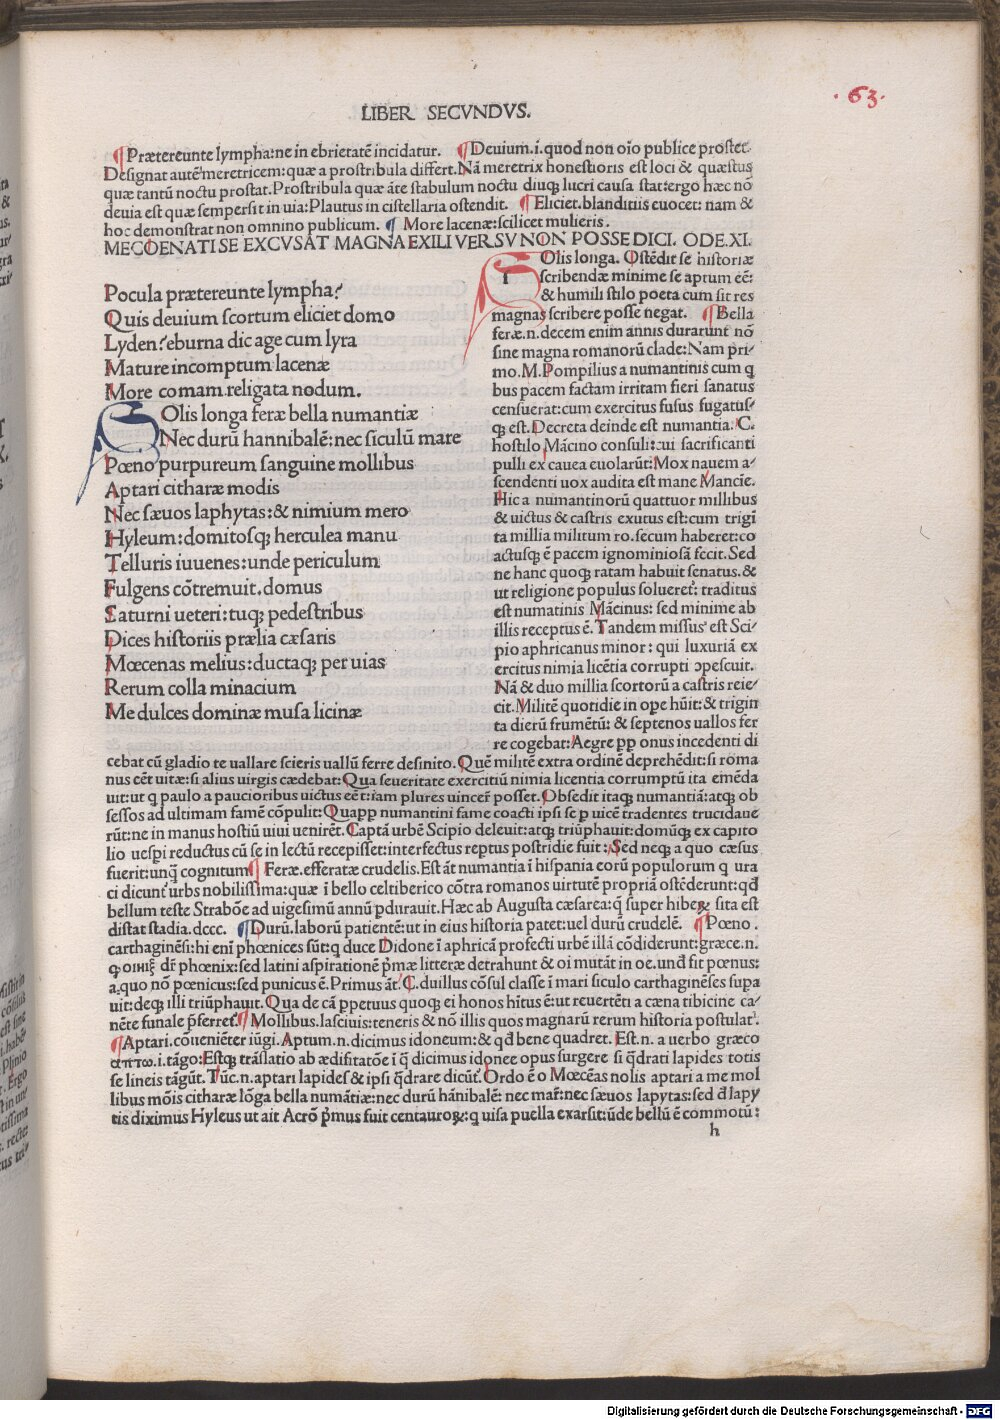 LIBER SECVNDVS.
63.
¶ Prætereunte lympha:ne in ebrietatē incidatur. ¶ Deuium.i.quod non oīo publice prostet.
Designat autē meretricem: quæ a prostribula differt. Nā meretrix honestioris est loci & quæstus
quæ tantū noctu prostat. Prostribula quæ āte stabulum noctu diuq; lucri causa stat: ergo hæc nō
deuia est quæ semper sit in uia: Plautus in cistellaria ostendit. ¶ Eliciet. blanditiis euocet: nam &
hoc demonstrat non omnino publicum. ¶ More lacenæ: scilicet mulieris.
MECOENATI SE EXCVSAT MAGNA EXILI VERSV NON POSSE DICI. ODE.XI.
Pocula prætereunte lympha?
Quis deuium scortum eliciet domo
Lyden? eburna dic age cum lyra
Mature incomptum lacenæ
More comam religata nodum.
SOlis longa feræ bella numantiæ
Nec durū hannibalē: nec siculū mare
Pœno purpureum sanguine mollibus
Aptari citharæ modis
Nec sæuos laphytas: & nimium mero
Hyleum: domitosq; herculea manu
Telluris iuuenes: unde periculum
Fulgens cōtremuit. domus
Saturni ueteri: tuq; pedestribus
Dices historiis prælia cæsaris
Mœcenas melius: ductaq; per uias
Rerum colla minacium
Me dulces dominæ musa licinæ
Olis longa. Ostēdit se historiæ
scribendæ minime se aptum eē:
& humili stilo poeta cum sit res
magnas scribere posse negat. ¶ Bella
feræ.n. decem enim annis durarunt nō
sine magna romanorū clade: Nam pri/
mo. M. Pompilius a numantinis cum q
bus pacem factam irritam fieri sanatus
censuerat: cum exercitus fusus fugatus/
q; est. Decreta deinde est numantia. C.
hostilo Mācino consuli: cui sacrificanti
pulli ex cauea euolarūt: Mox nauem a/
scendenti uox audita est mane Mancīe.
Hic a numantinorū quattuor millibus
& uictus & castris exutus est: cum trigī
ta millia militum ro. secum haberet: co
actusq; ē pacem ignominiosā fecit. Sed
ne hanc quoq; ratam habuit senatus. &
ut religione populus solueret: traditus
est numatinis Mācinus: sed minime ab
illis receptus ē. Tandem missus est Sci/
pio aphricanus minor: qui luxuriā ex
ercitus nimia licētia corrupti ɔpescuit.
Nā & duo millia scortorū a castris reie/
cit. Militē quotidie in ope hūit: & trigin
ta dierū frumētū: & septenos uallos fer
re cogebat: Aegre pp onus incedenti di
cebat cū gladio te uallare scieris uallū ferre desinito. Quē militē extra ordinē deprehēdit: si roma
nus eēt uitæ: si alius uirgis cædebat: Qua seueritate exercitiū nimia licentia corrumptū ita emēda
uit: ut q paulo a paucioribus uictus eēt: iam plures uincer posset. Obsedit itaq; numantiā: atq; ob
sessos ad ultimam famē cōpulit: Quapp numantini fame coacti ipsi se p uicē tradentes trucidaue
rūt: ne in manus hostiū uiui uenirēt. Captā urbē Scipio deleuit: atq; triūphauit: domūq; ex capito
lio uespi reductus cū se in lectū recepisset: interfectus reptus postridie fuit: Sed neq; a quo cæsus
fuerit: unq cognitum ¶ Feræ. efferatæ crudelis. Est āt numantia ī hispania eorū populorum q ura
ci dicunt urbs nobilissima: quæ ī bello celtiberico cōtra romanos uirtutē propriā ostēderunt: qd
bellum teste Strabōe ad uigesimū annū pdurauit. Hæc ab Augusta cæsarea: q super hiberꝝ sita est
distat stadia. dccc. ¶ Durū. laborū patientē: ut in eius historia patet: uel durū crudelē. ¶ Pœno.
carthaginēsi: hi enī phœnices sūt: q duce Didone ī aphricā profecti urbē illā cōdiderunt: græce.n.
dr phœnix: sed latini aspirationē pmæ litteræ detrahunt & oi mutāt in oe. und fit pœnus:
a quo nō pœnicus: sed punicus ē. Primus āt. C. duillus cōsul classe ī mari siculo carthaginēses supa
uit: deq; illi triūphauit. Qua de cā ppetuus quoq; ei honos hītus ē: ut reuertēti a cæna tibicine ca/
nēte funale pferret. ¶ Mollibus. lasciuis: teneris & nō illis quos magnarū rerum historia postulat.
¶ Aptari. cōueniēter iūgi. Aptum.n. dicimus idoneum: & qd bene quadret. Est.n. a uerbo græco
απτω.i. tāgo: Estq; trāslatio ab ædifitatōe ī q dicimus idonee opus surgere si qdrati lapides totis
se lineis tāgūt. Tūc.n. aptari lapides & ipsi qdrare dicūt. Ordo ē o Mœcēas nolis aptari a me mol
libus mōis citharæ lōga bella numātiæ: nec durū hānibalē: nec mar: nec sæuos lapytas: sed d lapy
tis diximus Hyleus ut ait Acrō pmus fuit centauroꝝ: q uisa puella exarsit: ūde bellū ē commotū:
h
Digitalisierung gefördert durch die Deutsche Forschungsgemeinschaft - DFG